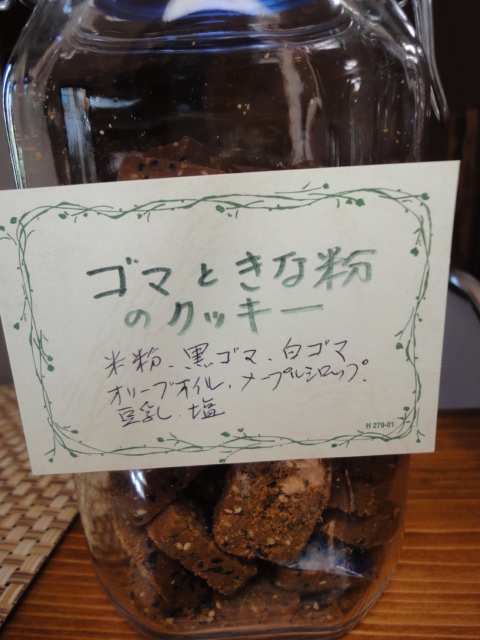 ゴマときな粉
のクッキー
米粉、黒ゴマ、白ゴマ
オリーブオイル、メープルシロップ、
豆乳、塩
H 279-01